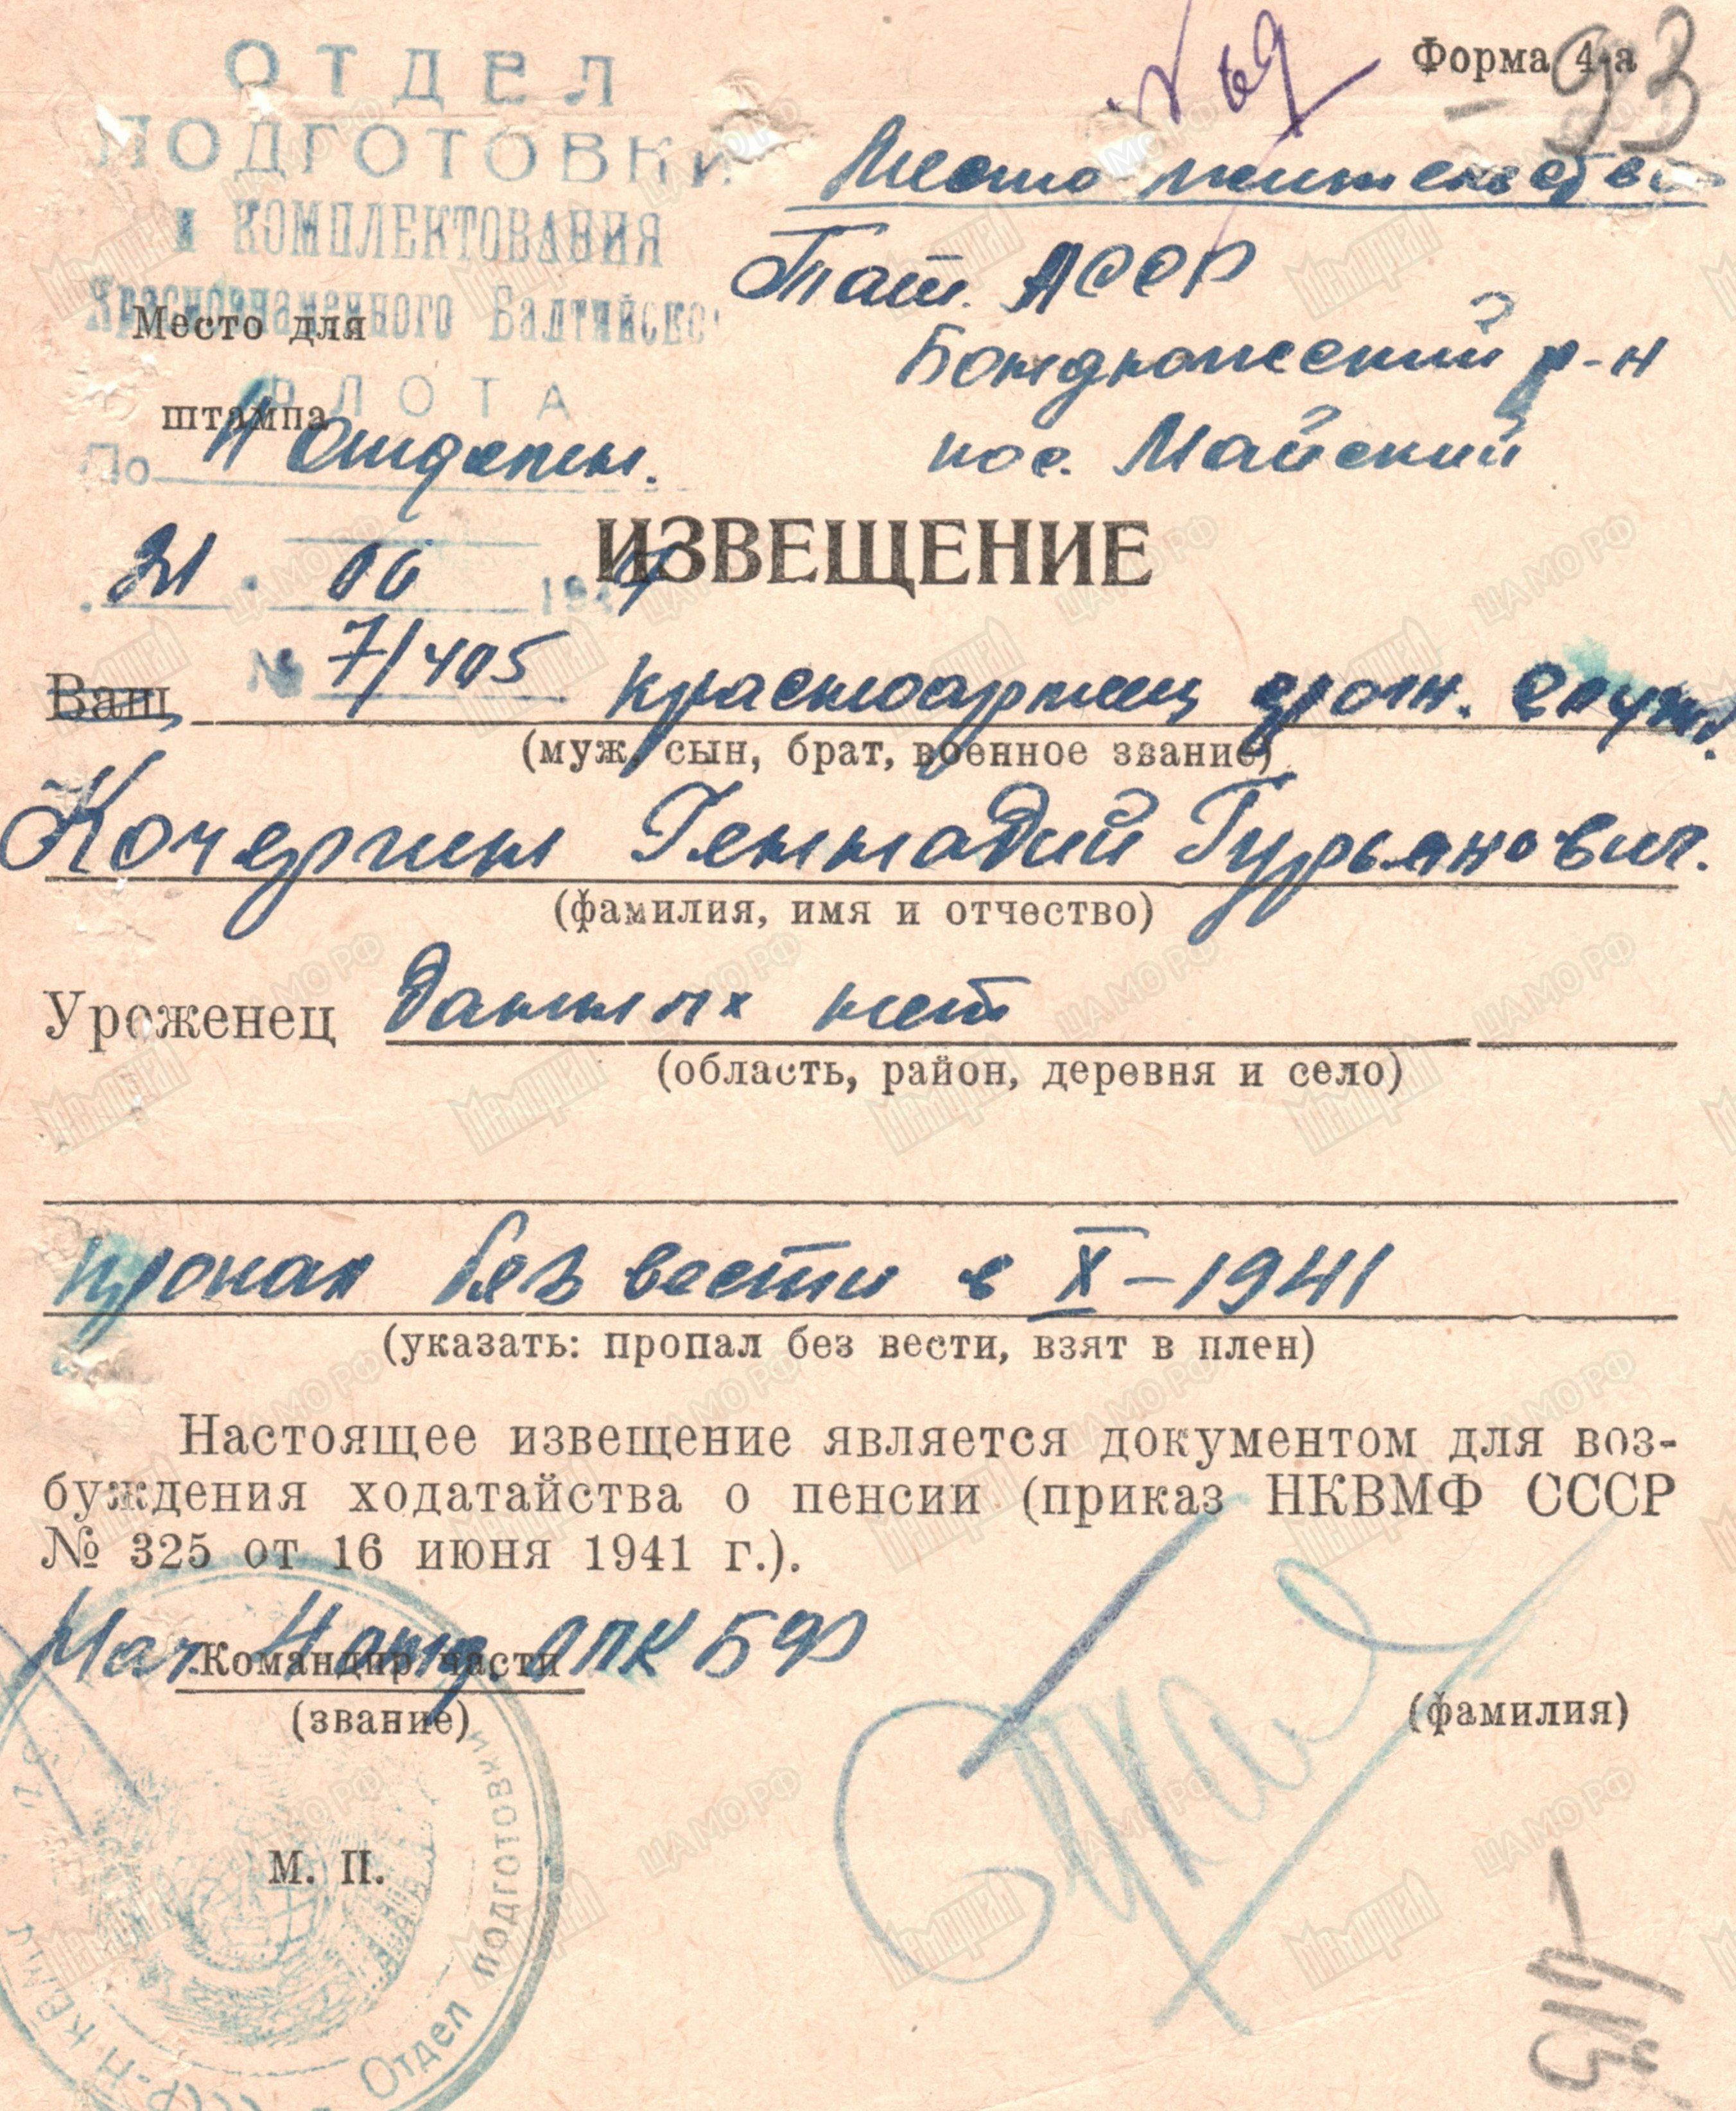 Форма 4-а
93
№ 69
ОТДЕЛ
ПОДГОТОВКИ
и КОМПЛЕКТОВАНИЯ
Краснознаменного Балтийско
ФЛОТА
Место для
штампа
Место жительства
Тат. АССР
р-н
пос. Майский
По II Отделен.
21. 06 194
№ 7/405
ИЗВЕЩЕНИЕ
Ваш красноармеец срочн. служ.
(муж, сын, брат, военное звание)
Кочергин Геннадий Гурьянович.
(фамилия, имя и отчество)
Уроженец данных нет
(область, район, деревня и село)
пропал без вести в X-1941
(указать: пропал без вести, взят в плен)
Настоящее извещение является документом для воз-
буждения ходатайства о пенсии (приказ НКВМФ СССР
№ 325 от 16 июня 1941 г.).
Нач. ОПК БФ
Командир части
(звание)
(фамилия)
М. П.
Отдел подготовки
Мемориал
ЦАМО РФ